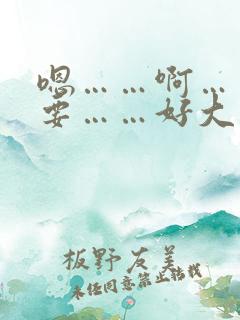 嗯……啊…
要……好大
板野友美
未经同意禁止转载